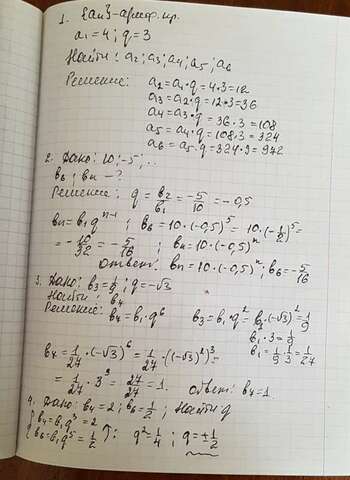 1. {an}-арифм. пр.
a₁=4; q=3
Найти: a₂; a₃; a₄; a₅; a₆
Решение: a₂=a₁·q=4·3=12
a₃=a₂·q=12·3=36
a₄=a₃·q=36·3=108
a₅=a₄·q=108·3=324
a₆=a₅·q=324·3=972
2. Дано: 10; -5; ..
b₆; bn -?
Решение: q = b₂/b₁ = -5/10 = -0,5
bn=b₁qⁿ⁻¹; b₆=10·(-0,5)⁵=10·(-1/2)⁵=
=-10/32=-5/16; bn=10·(-0,5)ⁿ
Ответ: bn=10·(-0,5)ⁿ; b₆=-5/16
3. Дано: b₃=1/9; q=-√3
Найти: b₇
Решение: b₇=b₁·q⁶ b₃=b₁·q²=b₁·(-√3)²=1/9
b₁·3=1/9
b₁=1/9·1/3=1/27
b₇=1/27·(-√3)⁶=1/27·((-√3)²)³=
=1/27·3³=27/27=1. Ответ: b₇=1
4. Дано: b₄=2; b₆=1/2; Найти q
{b₄=b₁q³=2
{b₆=b₁q⁵=1/2 ↑: q²=1/4; q=±1/2